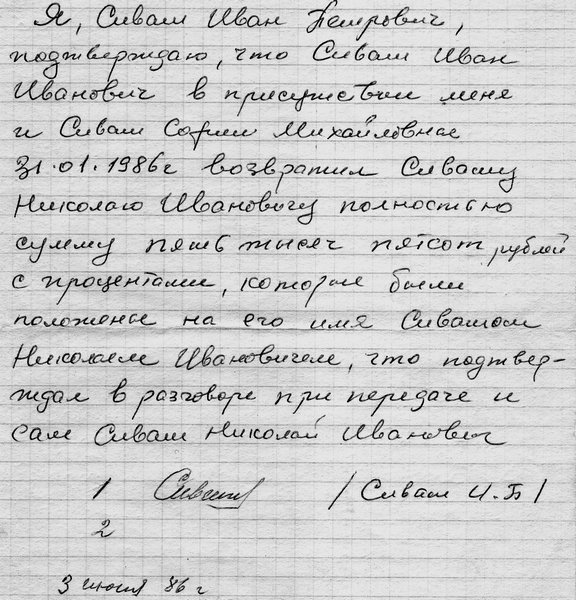 Я, Сиваш Иван Петрович,
подтверждаю, что Сиваш Иван
Иванович в присутствии меня
и Сиваш Софии Михайловны
31.01.1986г возвратил Сивашу
Николаю Ивановичу полностью
сумму пять тысяч пятсот рублей
с процентами, которые были
положены на его имя Сивашом
Николаем Ивановичем, что подтвер-
ждал в разговоре при передаче и
сам Сиваш Николай Иванович
1 Сиваш / Сиваш И.П /
2
3 июня 86 г